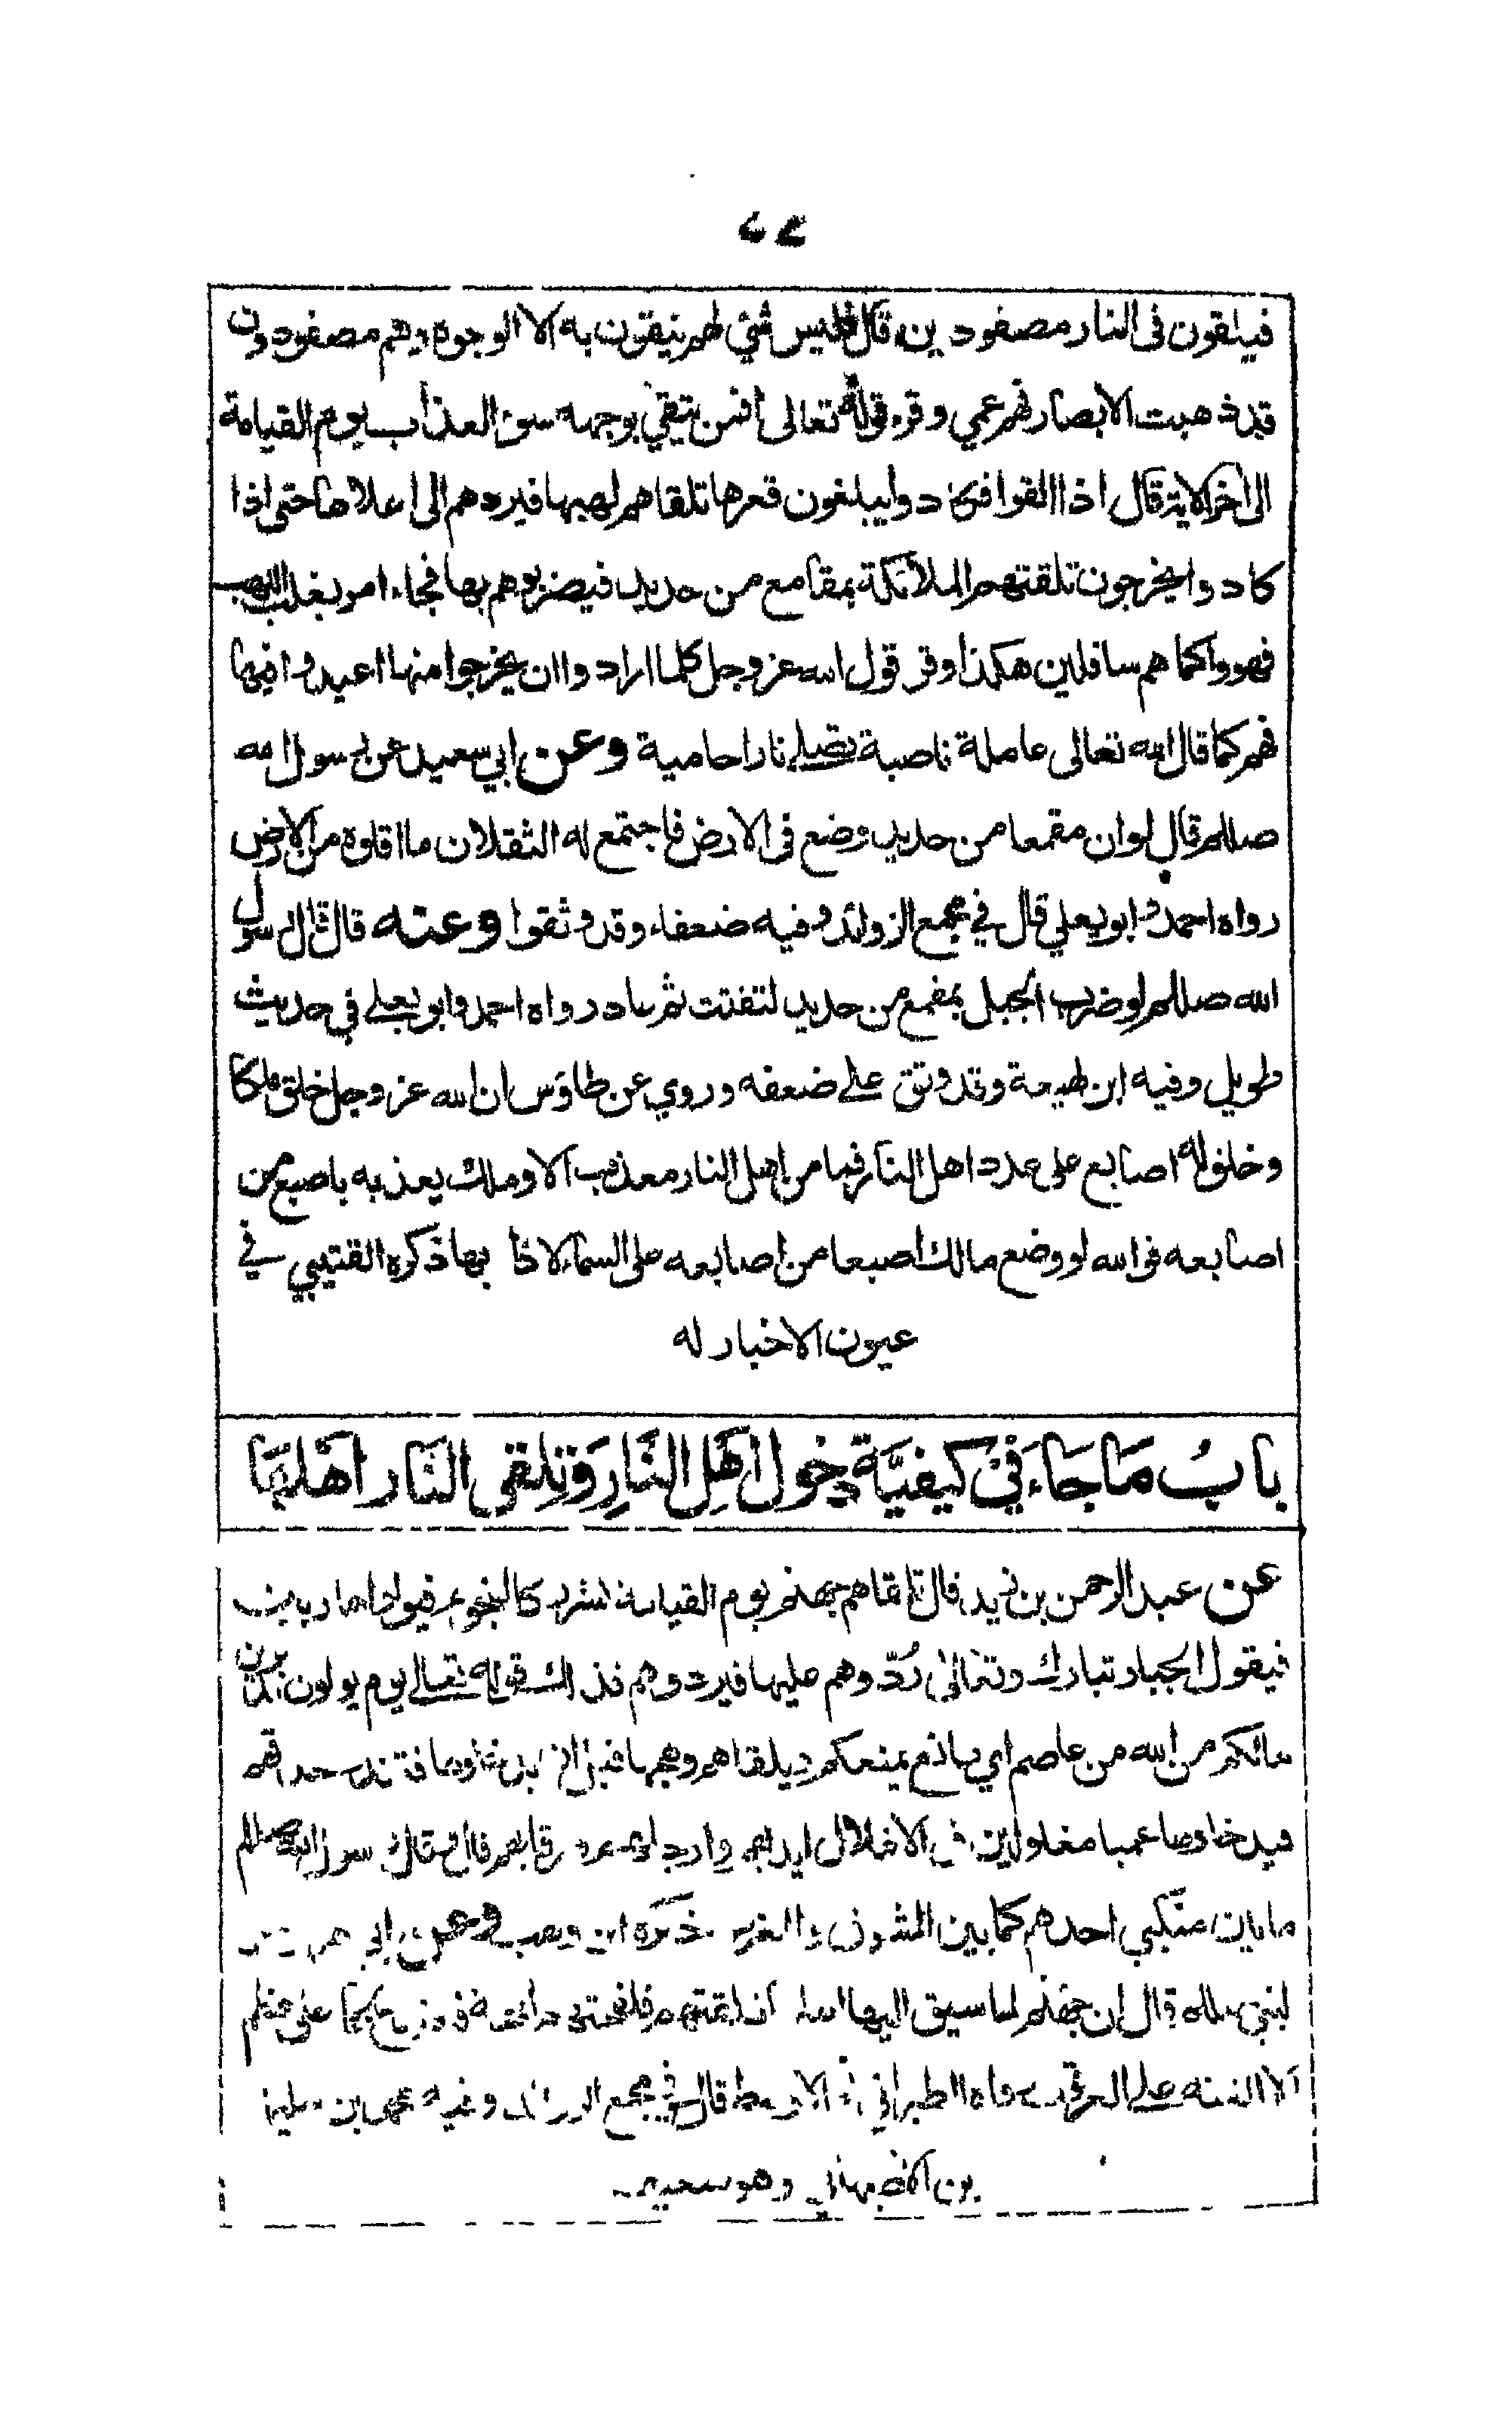 فيلقون فى النار مصفودين وقال فليس شئ لهم يتقون به الا الوجوه وهم مصفودون
قد ذهبت الابصار فهم عمي وقرء قوله تعالى افمن يتقي بوجهه سوء العذاب يوم القيامة
الى اخر الاية قال اذا القوا فى كادوا يبلغون قعرها تلقاهم لهبها فيردهم الى اعلاها حتى اذا
كادوا يخرجون تلقتهم الملائكة بمقامع من حديد فيضربوهم بها فجاء امر يغلب اللهب
فهووا كما هم سافلين هكذا وقر قول الله عز وجل كلما ارادوا ان يخرجوا منها اعيدوا فيها
فهم كما قال الله تعالى عاملة ناصبة تصلى نارا حامية وعن ابي سعيد عن رسول الله
صللم قال لو ان مقمعا من حديد وضع فى الارض فاجتمع له الثقلان ما اقلوه من الارض
رواه احمد وابو يعلي قال في مجمع الزوائد وفيه ضعفاء وقد وثقوا وعنه قال قال رسول
الله صللم لو ضرب الجبل بمقمع من حديد لتفتت ثم عاد رواه احمد وابو يعلى في حديث
طويل وفيه ابن لهيعة وقد وثق على ضعفه وروي عن طاؤس ان الله عز وجل خلق ملكا
وخلق له اصابع على عدد اهل النار فما من اهل النار معذب الا وملك يعذبه باصبع من
اصابعه فوالله لو وضع مالك اصبعا من اصابعه على السماء لاذابها ذكره القتيبي في
عيون الاخبار له
بابُ مَا جَاءَ فِيْ كيفيَّة دخول اَهْلِ النَّارِ وَتلقى النَّار اَهْلهَا
عن عبد الرحمن بن زيد قال تلقاهم جهنم يوم القيامة بشرر كالنجوم فيولوا هاربين
فيقول الجبار تبارك وتعالىٰ رُدّوهم عليها فيردوهم فذالك قوله تعالى يوم يولون مدبرين
مالكم من الله من عاصم اي مانع يمنعكم ويلقاهم وهجها قبل ان يدخلوها فتندر حدقهم
فيدخلوها عميا مغلولين في الاغلال ايديهم وارجلهم ورقابهم قال قال رسول الله صللم
ما بين منكبي احدهم كما بين المشرق والمغرب ذكره ابن وهب وعن ابي هريرة
لنبي صللم قال ان جهنم لما سيق اليها اهلها تلقتهم فلفحتهم لفحة
على العرقوب رواه الطبراني فى الاوسط قال في مجمع الزوائد وفيه محمد بن سليمان
بن الاصبهاني وهو ضعيف